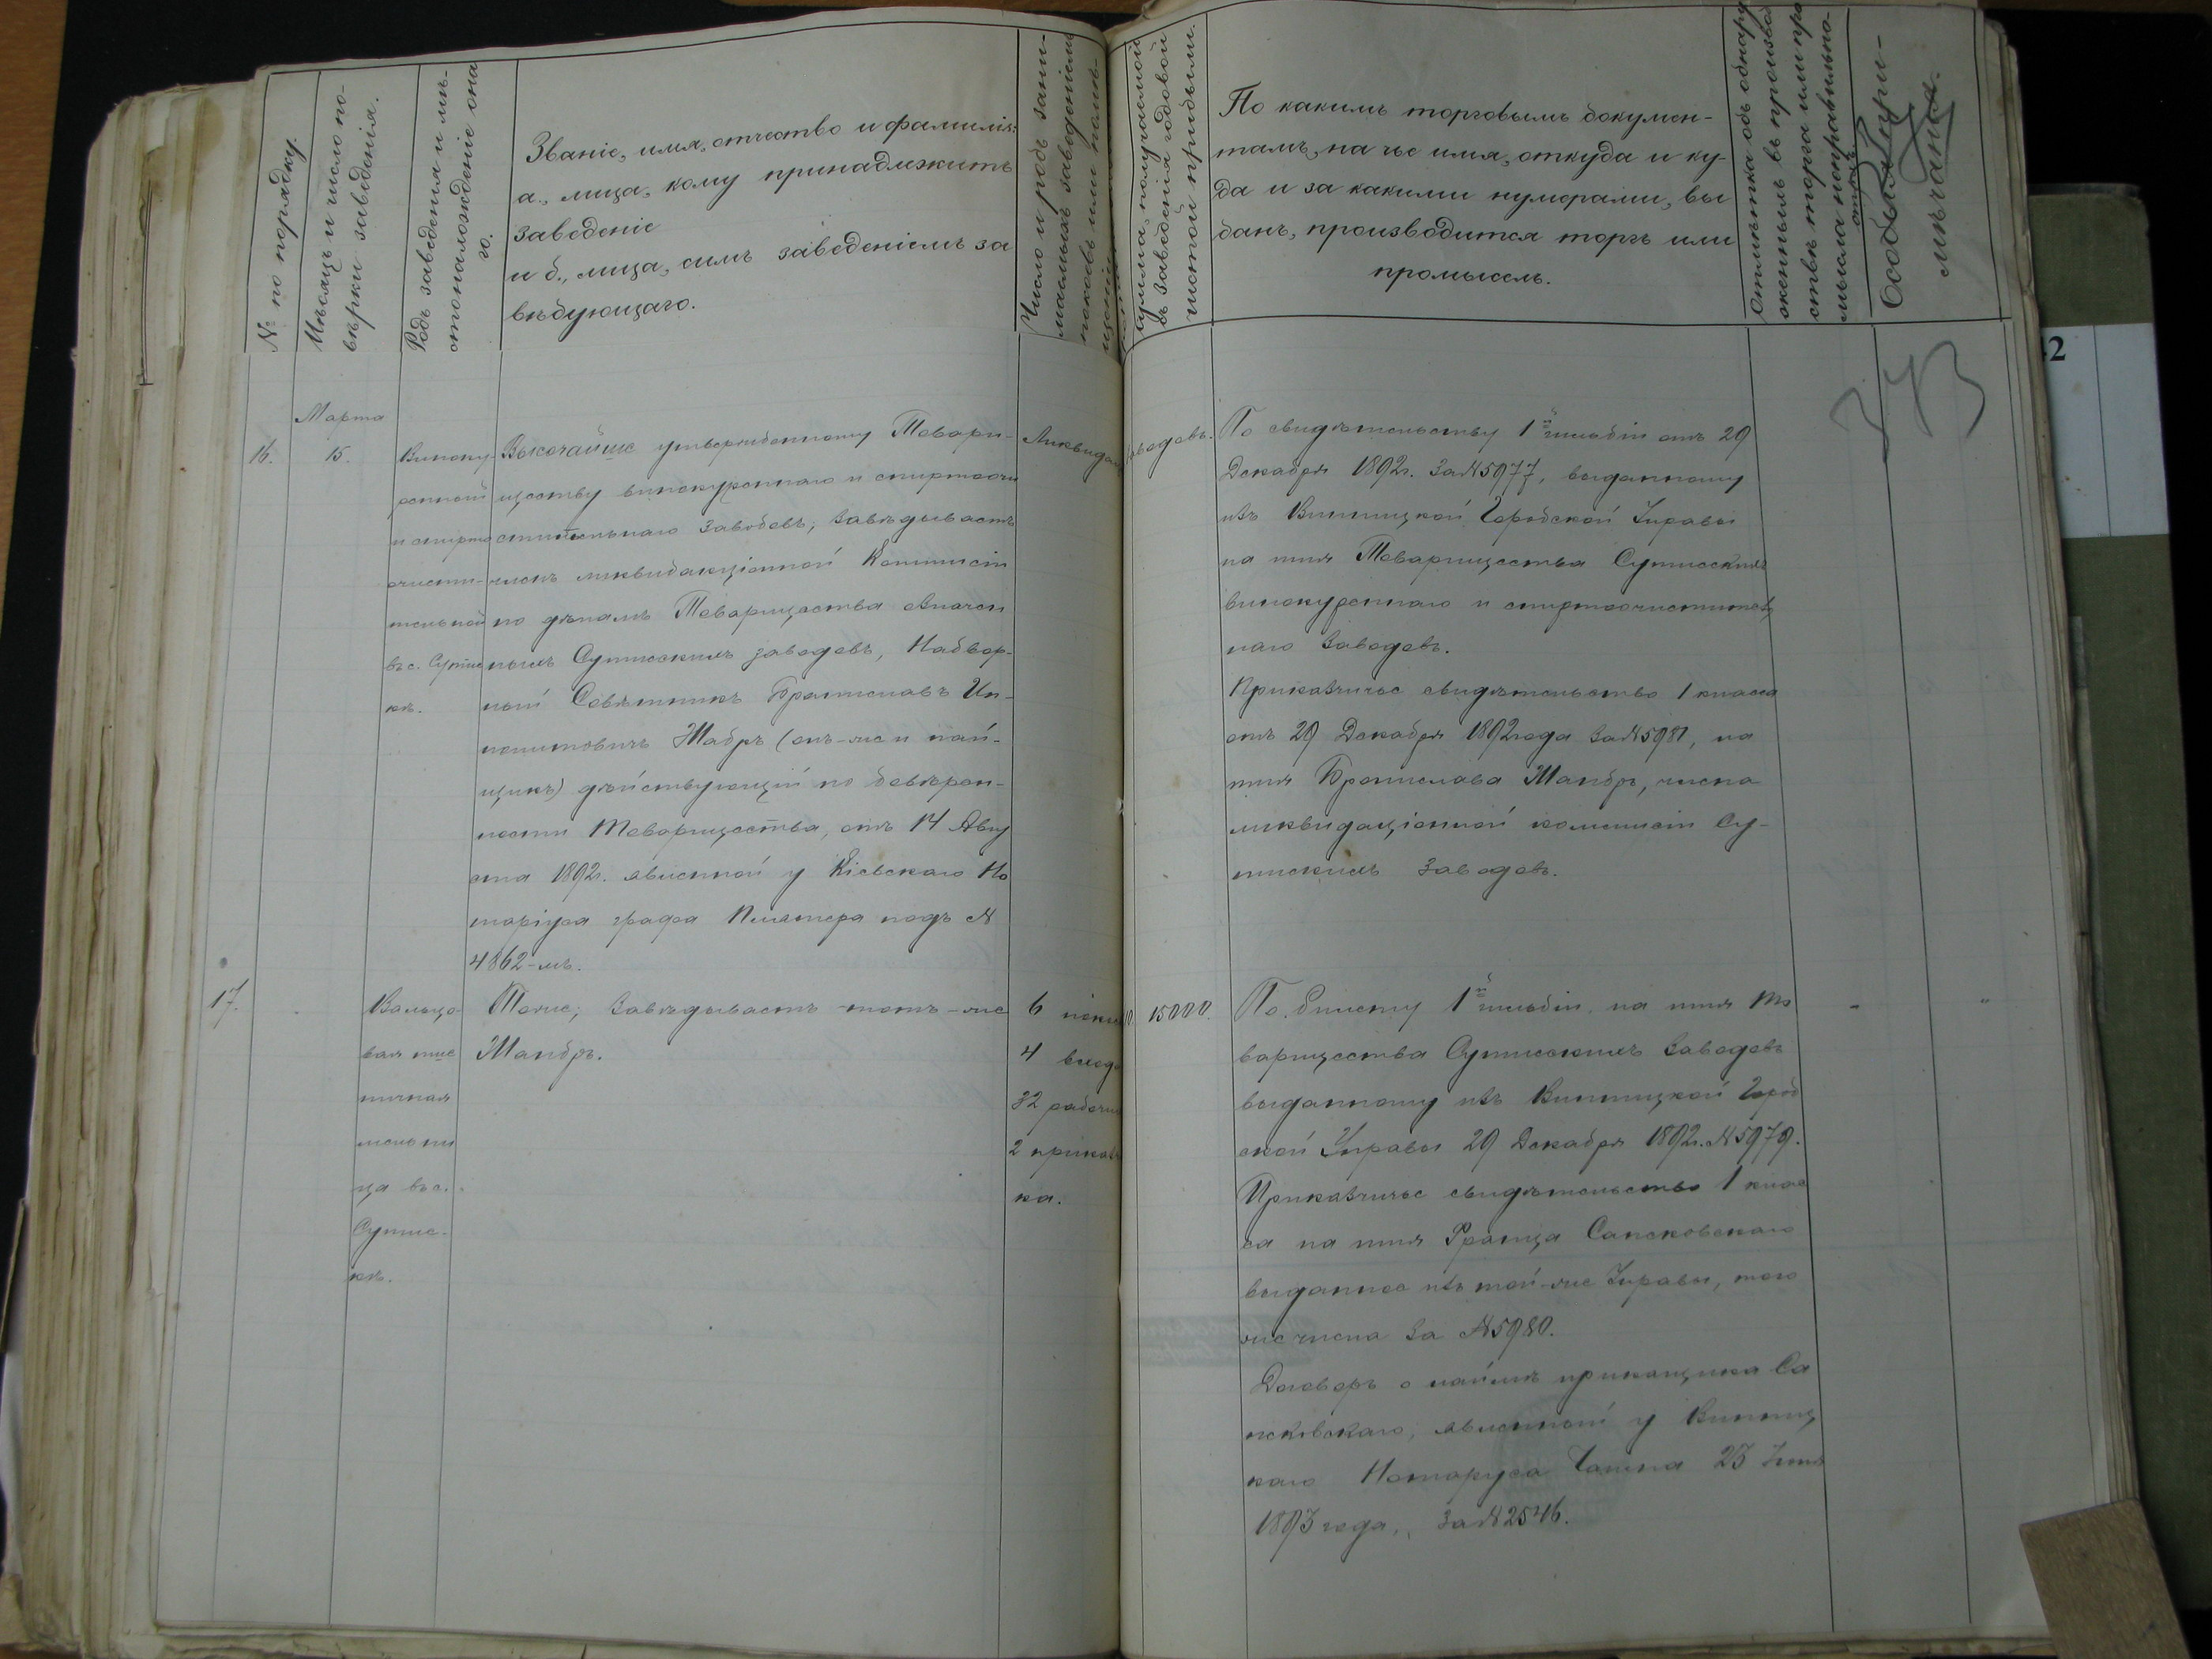 № по порядку.
Мѣсяцъ и число по-
вѣрки заведенія.
Родъ заведенія и мѣ-
стонахожденіе она
го.
Званіе, имя, отчество и фамилія:
а., лица, кому принадлежитъ
заведеніе
и б., лица, симъ заведеніемъ за
вѣдующаго.
Число и родъ зани-
маемыхъ заведеніемъ
покоевъ или помѣ-
сумма, получаемой
въ заведеніи годовой
чистой прибыли.
По какимъ торговымъ докумен-
тамъ, на чье имя, откуда и ку-
да и за какими нумерами, вы
данъ, производится торгъ или
промыселъ.
Отмѣтка объ обнару
женныхъ въ производ
ствѣ торга или про
мысла неправильно-
стяхъ
Особыя при-
мѣчанія.
343
Марта
16.
15.
Виноку-
ренный
и спирто
очисти-
тельный
въ с. Сутис
кѣ.
Высочайше утвержденному Товари-
ществу винокуреннаго и спиртоочи
стительнаго заводовъ; завѣдываетъ
членъ ликвидаціонной Коммисіи
по дѣламъ Товарищества означен
ныхъ Сутисскихъ заводовъ, Надвор-
ный Совѣтникъ Брониславъ Ип-
политовичъ Шабръ (онъ-же и пай-
щикъ) дѣйствующій по довѣрен-
ности Товарищества, отъ 14 Авгу
ста 1892 г. явленной у Кіевскаго Но
таріуса графа Плятера подъ №
4862-мъ.
Ликвидац
заводовъ.
По свидѣтельству 1й гильдіи отъ 29
Декабря 1892 г. за № 5977, выданному
изъ Винницкой Городской Управы
на имя Товарищества Сутисскихъ
винокуреннаго и спиртоочиститель
наго заводовъ.
Приказчичье свидѣтельство 1 класса
отъ 29 Декабря 1892 года за № 5981, на
имя Бронислава Шанбръ, члена
ликвидаціонной коммисіи Су-
тискихъ заводовъ.
17.
Вальцо-
вая пше
ничная
мельни
ца въ с.
Сутис-
кѣ.
Тоже; завѣдываетъ тотъ-же
Шанбръ.
6
4
32 рабочих
2 приказч
ка.
15000.
По билету 1й гильдіи на имя То
варищества Сутисскихъ заводовъ
выданному изъ Винницкой Город
ской Управы 29 Декабря 1892 г. № 5979.
Приказчичье свидѣтельство 1 клас
са на имя Франца Сапсковскаго
выданное изъ той-же Управы, того
же числа за № 5980.
Договоръ о наймѣ прикащика Са
псковскаго, явленный у Винниц
каго Нотаруса 23
1893 года, за № 2546.